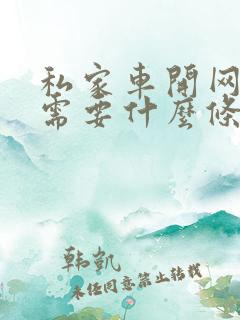 私家车開网
需要什麽條
韩凯
未经同意禁止转载